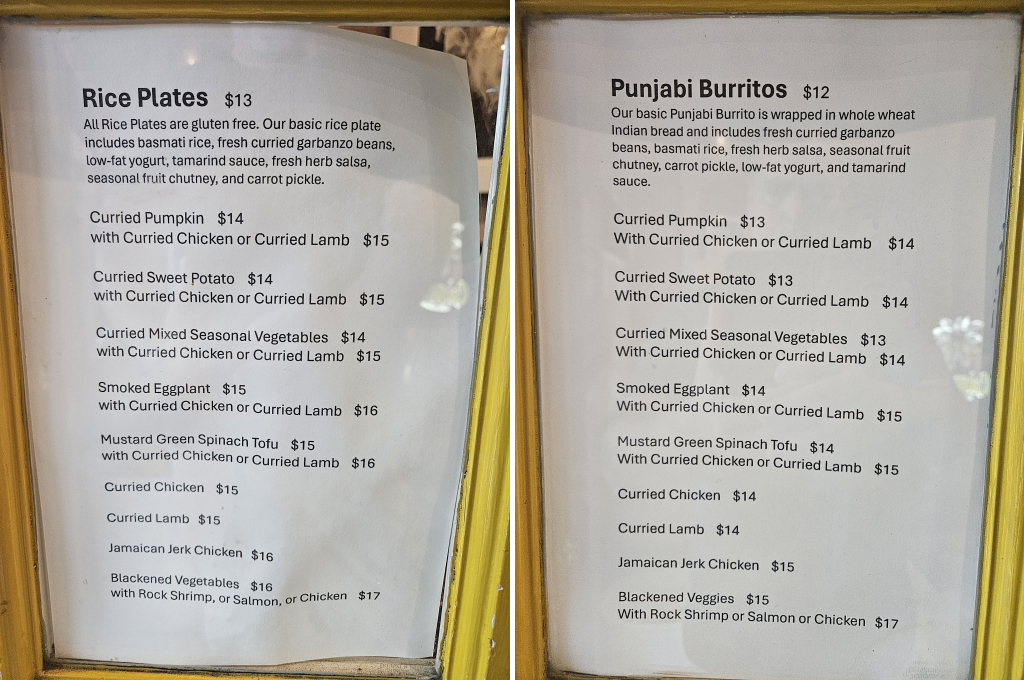 Rice Plates $13
All Rice Plates are gluten free. Our basic rice plate
includes basmati rice, fresh curried garbanzo beans,
low-fat yogurt, tamarind sauce, fresh herb salsa,
seasonal fruit chutney, and carrot pickle.
Curried Pumpkin $14
with Curried Chicken or Curried Lamb $15
Curried Sweet Potato $14
with Curried Chicken or Curried Lamb $15
Curried Mixed Seasonal Vegetables $14
with Curried Chicken or Curried Lamb $15
Smoked Eggplant $15
with Curried Chicken or Curried Lamb $16
Mustard Green Spinach Tofu $15
with Curried Chicken or Curried Lamb $16
Curried Chicken $15
Curried Lamb $15
Jamaican Jerk Chicken $16
Blackened Vegetables $16
with Rock Shrimp, or Salmon, or Chicken $17
Punjabi Burritos $12
Our basic Punjabi Burrito is wrapped in whole wheat
Indian bread and includes fresh curried garbanzo
beans, basmati rice, fresh herb salsa, seasonal fruit
chutney, carrot pickle, low-fat yogurt, and tamarind
sauce.
Curried Pumpkin $13
With Curried Chicken or Curried Lamb $14
Curried Sweet Potato $13
With Curried Chicken or Curried Lamb $14
Curried Mixed Seasonal Vegetables $13
With Curried Chicken or Curried Lamb $14
Smoked Eggplant $14
With Curried Chicken or Curried Lamb $15
Mustard Green Spinach Tofu $14
With Curried Chicken or Curried Lamb $15
Curried Chicken $14
Curried Lamb $14
Jamaican Jerk Chicken $15
Blackened Veggies $15
With Rock Shrimp or Salmon or Chicken $17